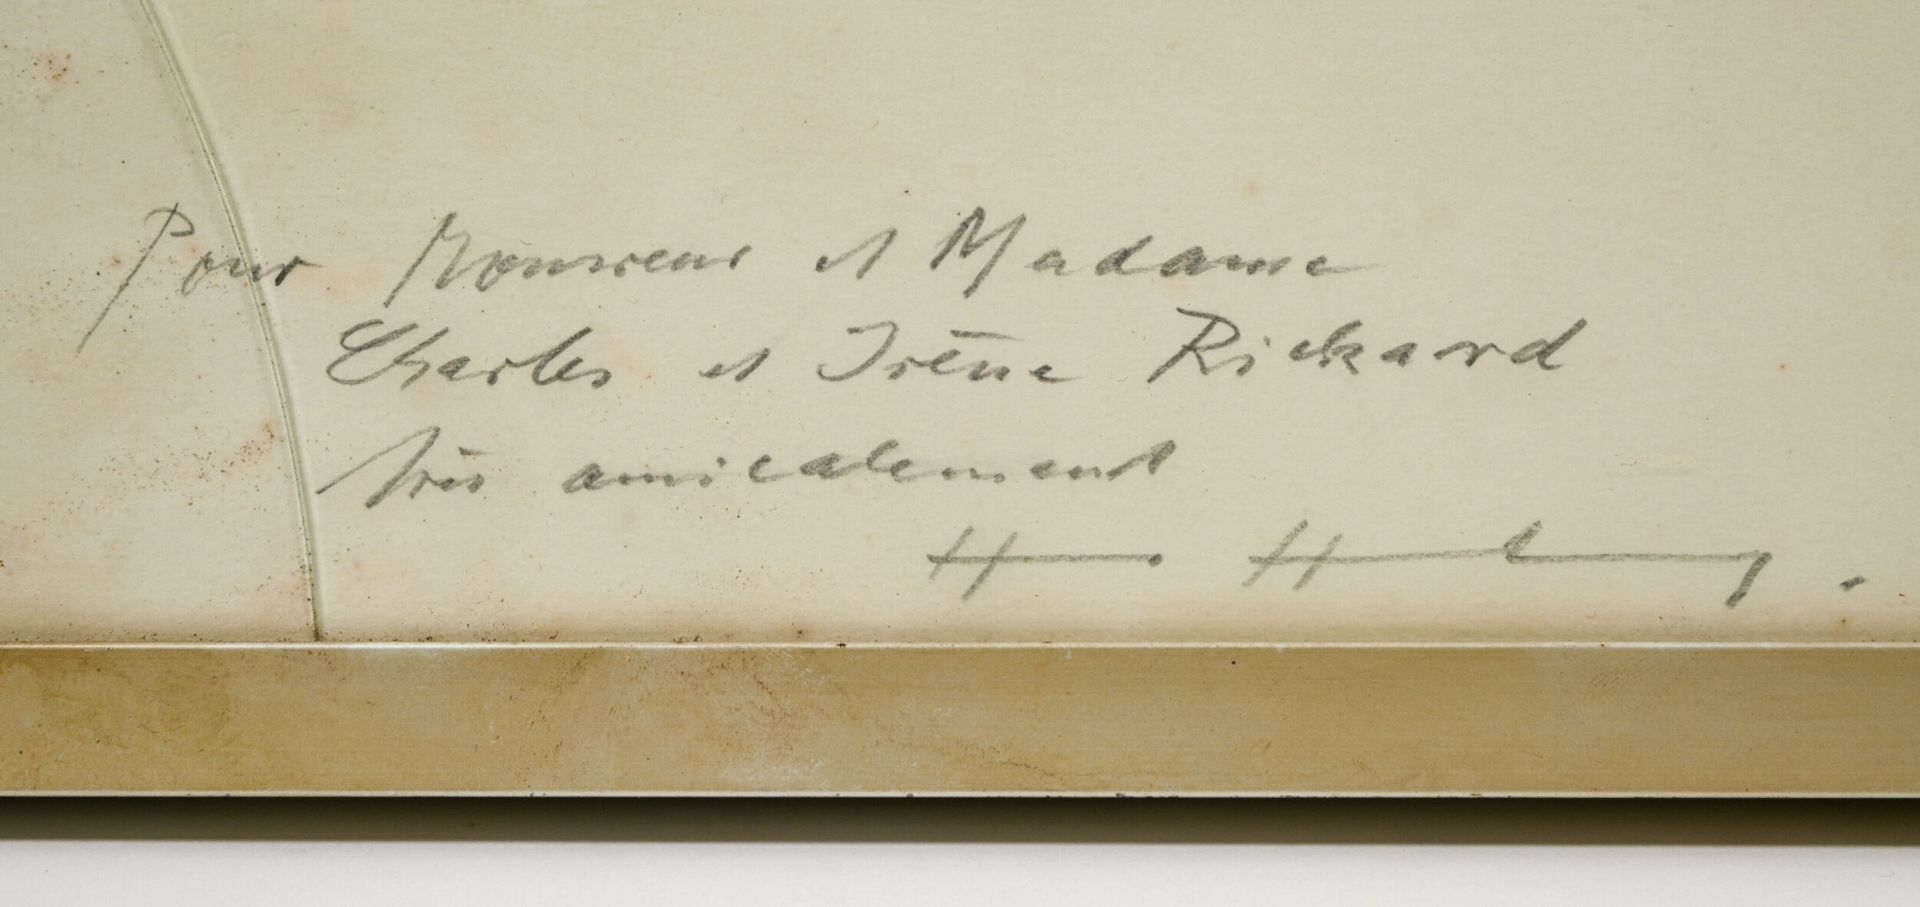 Pour Monsieur et Madame
Charles et Irène Rickard
très amicalement
H